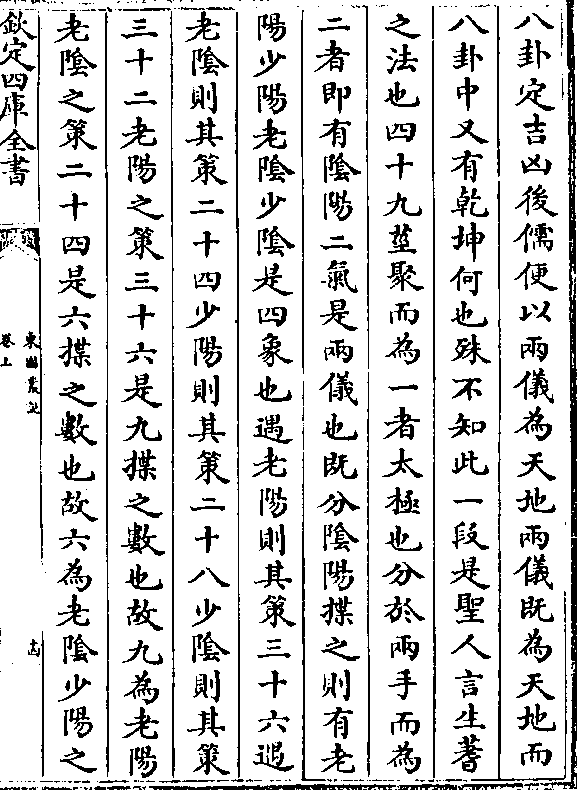 八卦定吉凶後儒便以兩儀為天地兩儀既為天地而
八卦中又有乾坤何也殊不知此一段是聖人言生蓍
之法也四十九莖聚而為一者太極也分於兩手而為
二者即有陰陽二氣是兩儀也既分陰陽揲之則有老
陽少陽老陰少陰是四象也遇老陽則其策三十六遇
老陰則其策二十四少陽則其策二十八少陰則其策
三十二老陽之策三十六是九揲之數也故九為老陽
老陰之策二十四是六揲之數也故六為老陰少陽之
欽定四庫全書
卷上